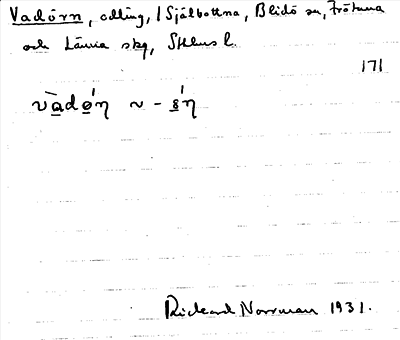 Vadörn, odling, i Själbottna, Blidö sn, Frötuna
och Länna skg, Sthlms l.
171
vàdǿη ~ -
Rickard Norrman 1931.